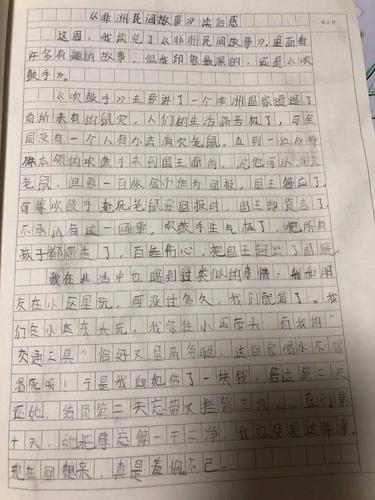 《非洲民间故事》读后感
这周，我读完了《非洲民间故事》，里面有
许多有趣的故事，但我印象最深的，还是《吹
鼓手》。
《吹鼓手》主要讲了一个非洲国家遭遇了
前所未有的鼠灾，人们的生活新苦极了，可全
国没有一个人有办法消灾老鼠。直到一位
本领的吹鼓手来到国王面前，说他可以消灭
老鼠，但要一百做为回报。国王答应了，
可等吹鼓手淹死老鼠要回报时，国王却食言了，
不承认有这一回事。吹鼓手生气极了，把所有
孩子都带走了，百姓伤心，把国王赶出了国
我在生活中也遇到过类似的事情：我和朋
友在小区里玩，可没过多久，我们就渴了。我
们在小区东头玩，我家住小区西头，而我的"
交通工具"恰好又是两条腿，这回家喝水不得
渴死啊！于是我向她借了一块钱，答应第二天
还她，结果第二天忘带又推第三天……直到第
十天，她把事忘得一干二净，我也没提这件事。
现在回想来，真是羞愧不已。